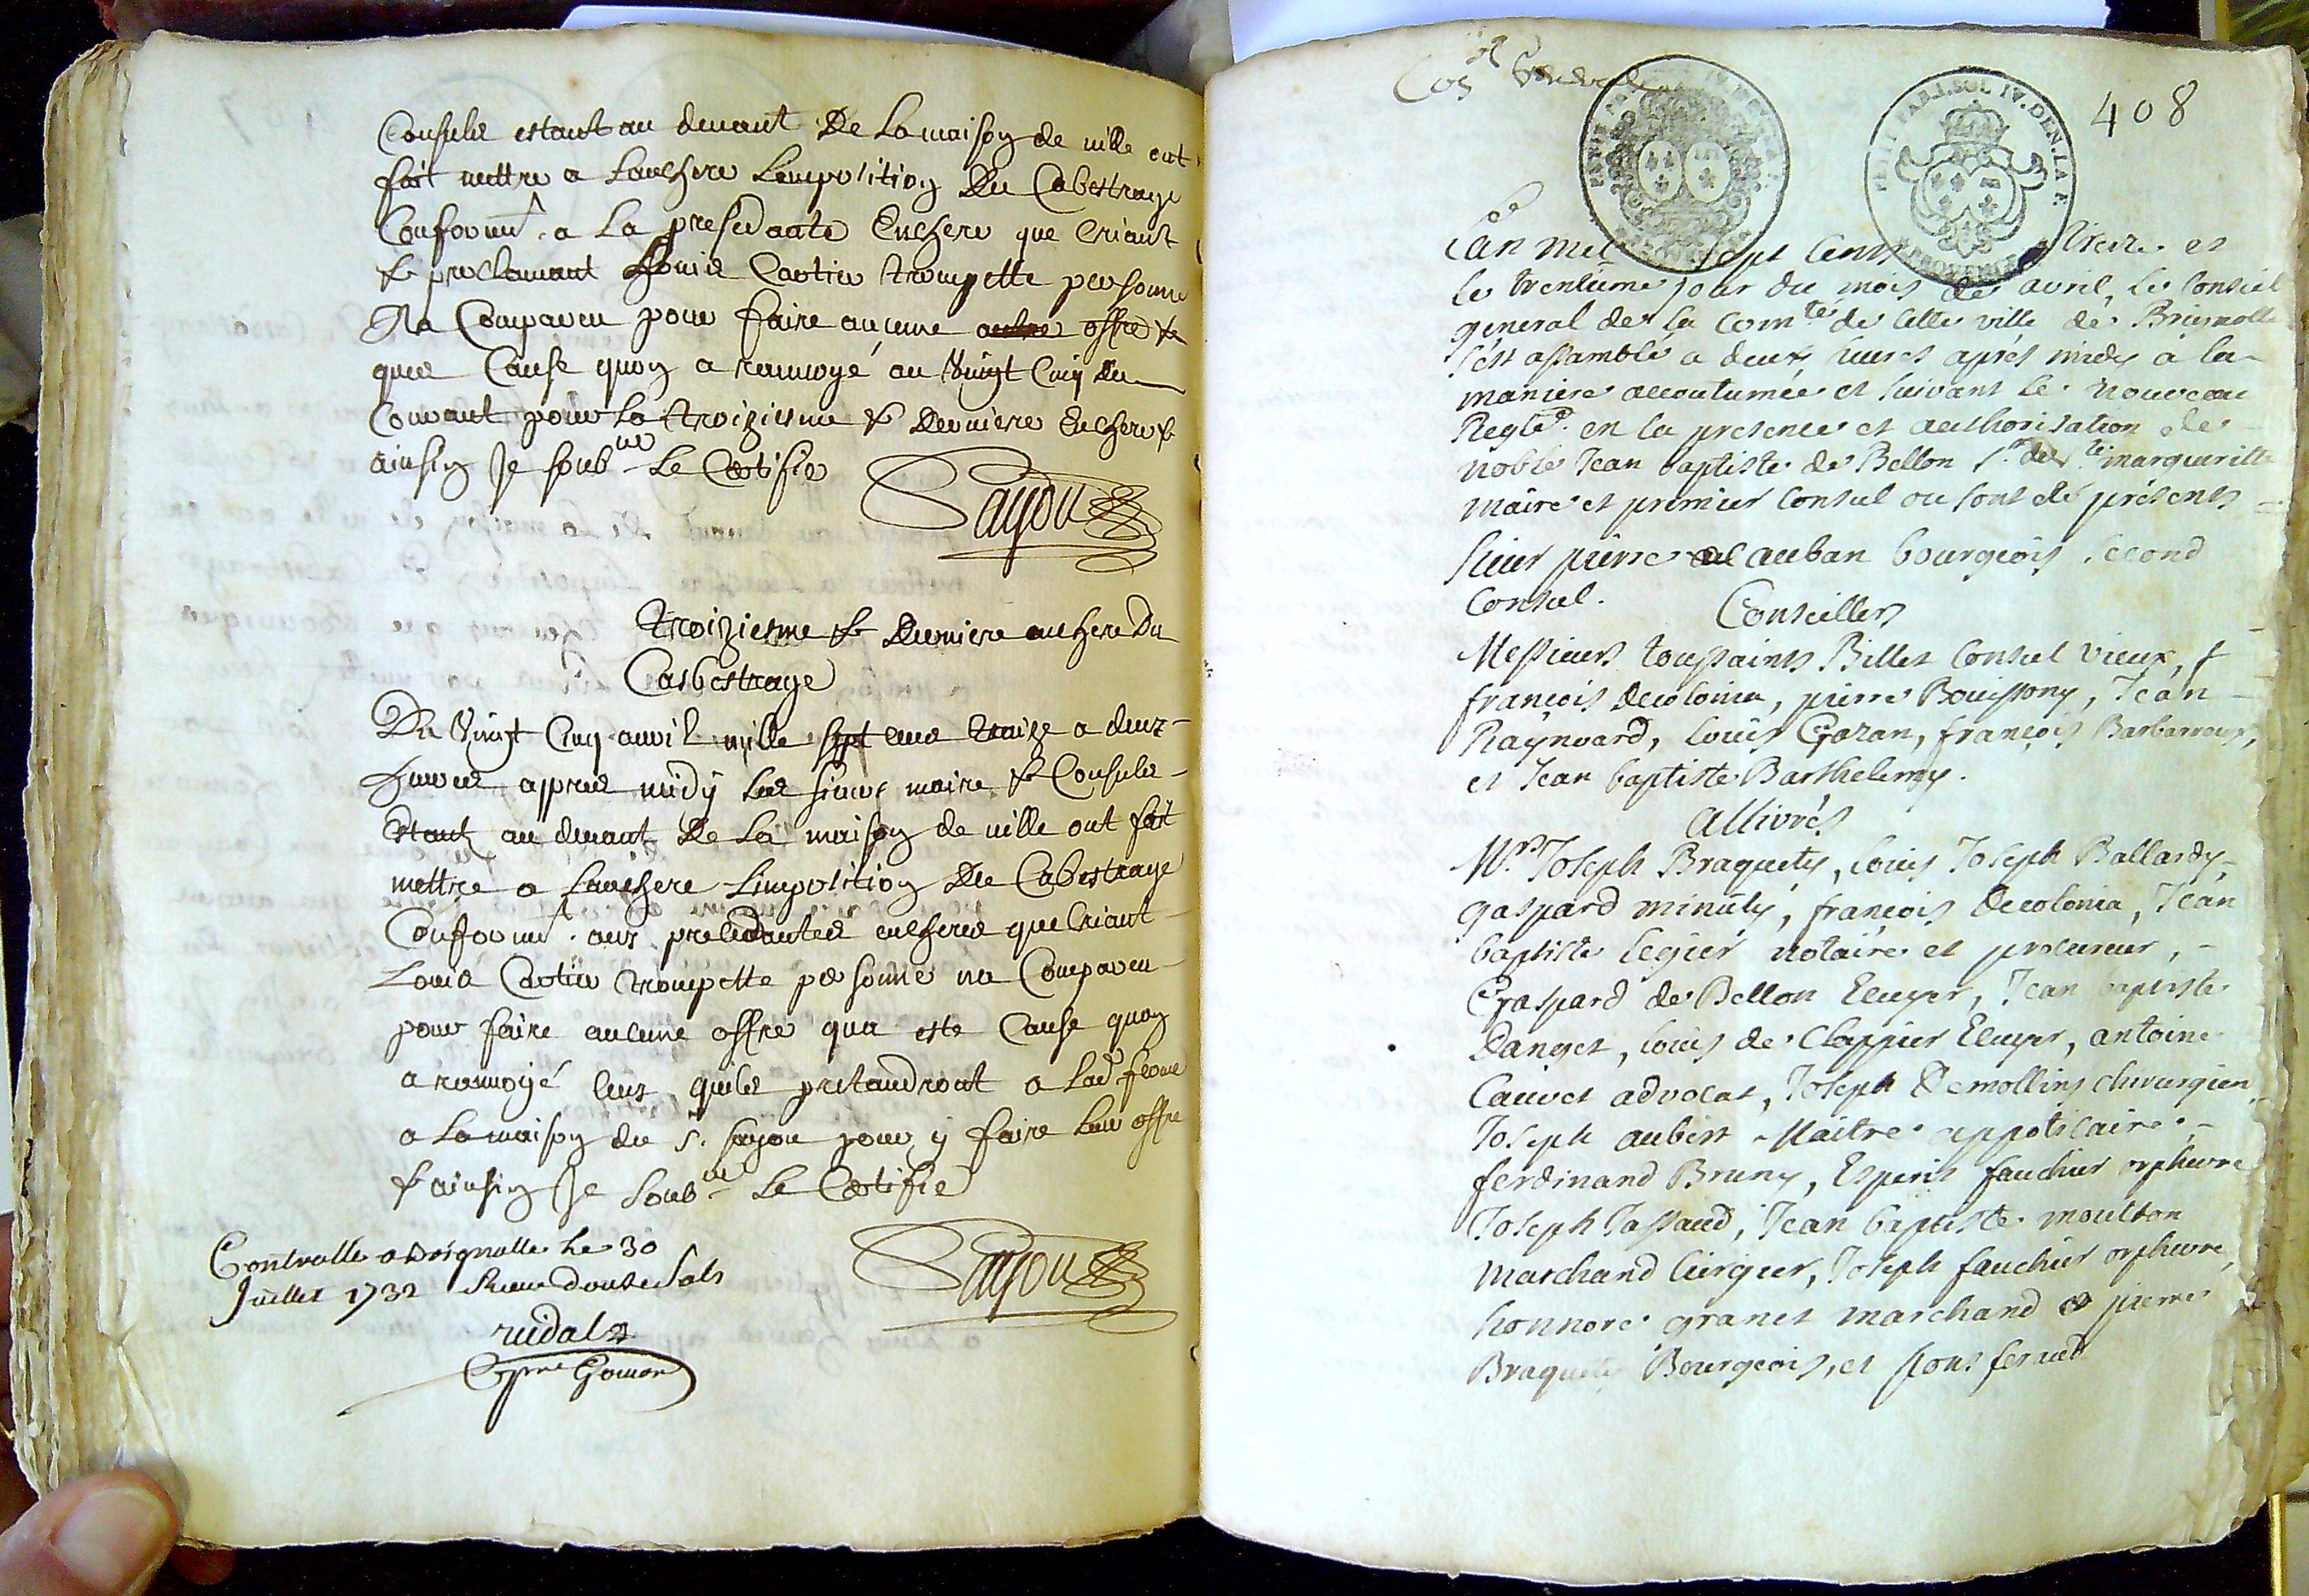 Consuls estant au devant De La maison de ville ont
fait mettre a Lanchere Limposition Du Cabestrage
Conformt. a La presedante Enchere que Criant
& proclamant Louis Cartier trompette personne
Na Compareu pour faire aucune autre offre &
ques Cause quoy a ranvoyé au Vingt Cinq Du
Courant pour La troiziesme & Derniere Enchere &
ainsin Je soubne Le Certifie
Sayou
Troiziesme & Derniere anchere Du
Casbestrage
Du Vingt Cinq avril mille sept cens traize a deux
heures appres midy Les sieurs maire & Consuls
Estant au devant De La maison de ville ont fait
mettre a Lanchere Limposition Du Cabestrage
Conformt. aux precedantes encheres que Criant
Louis Cartier trompette personne na Compareu
pour faire aucune offre qua este Cause quoy
a ranvoyé ceux quils pretandront a Lad ferme
a La maison du Sr. Sayou pour y faire Leur offre
& ainsin Je Soubne Le Certifie
Sayou
Controlle a Brignolle Le 30
Juillet 1732 Receu douse Sols
ridal
408
Lan mil sept Cents treize et
Le trentieme jour du mois de avril, Le Conseil
general de La Comte de Cette ville de Brignolle
s'est assamblé a deux heures aprés midy à la
maniere accoutumée et suivant Le nouveau
Reglet. en la presence et authorisation de
noble Jean baptiste de Bellon Sr. de Ste marguerille
maire et premier Consul ou sont été présents
sieur pierre auban bourgeois second
Consul.
Conseillers
Messieurs toussaints Billet Consul vieux,
françois Decolonia, pierre Bouissony, Jean
Raynoard, Louis Gazan, françois Barbarroux,
et Jean baptiste Barthelemy.
allivrés
Mrs. Joseph Braquety, Louis Joseph Ballardy,
gaspard minuty, françois Decolonia, Jean
baptiste Legier notaire et procureur,
Gaspard de Bellon Ecuyer, Jean baptiste
Danget, Louis de Clappier Ecuyer, antoine
Cauvet advocat, Joseph Demollins chirurgien
Joseph aubert Maitre appoticaire,
ferdinand Bruny, Esperit fauchier orphevre
Joseph Jassaud, Jean baptiste moutton
marchand Ciergier, Joseph fauchier orphevre,
honnoré granet marchand et pierre
Braquety Bourgeois, et